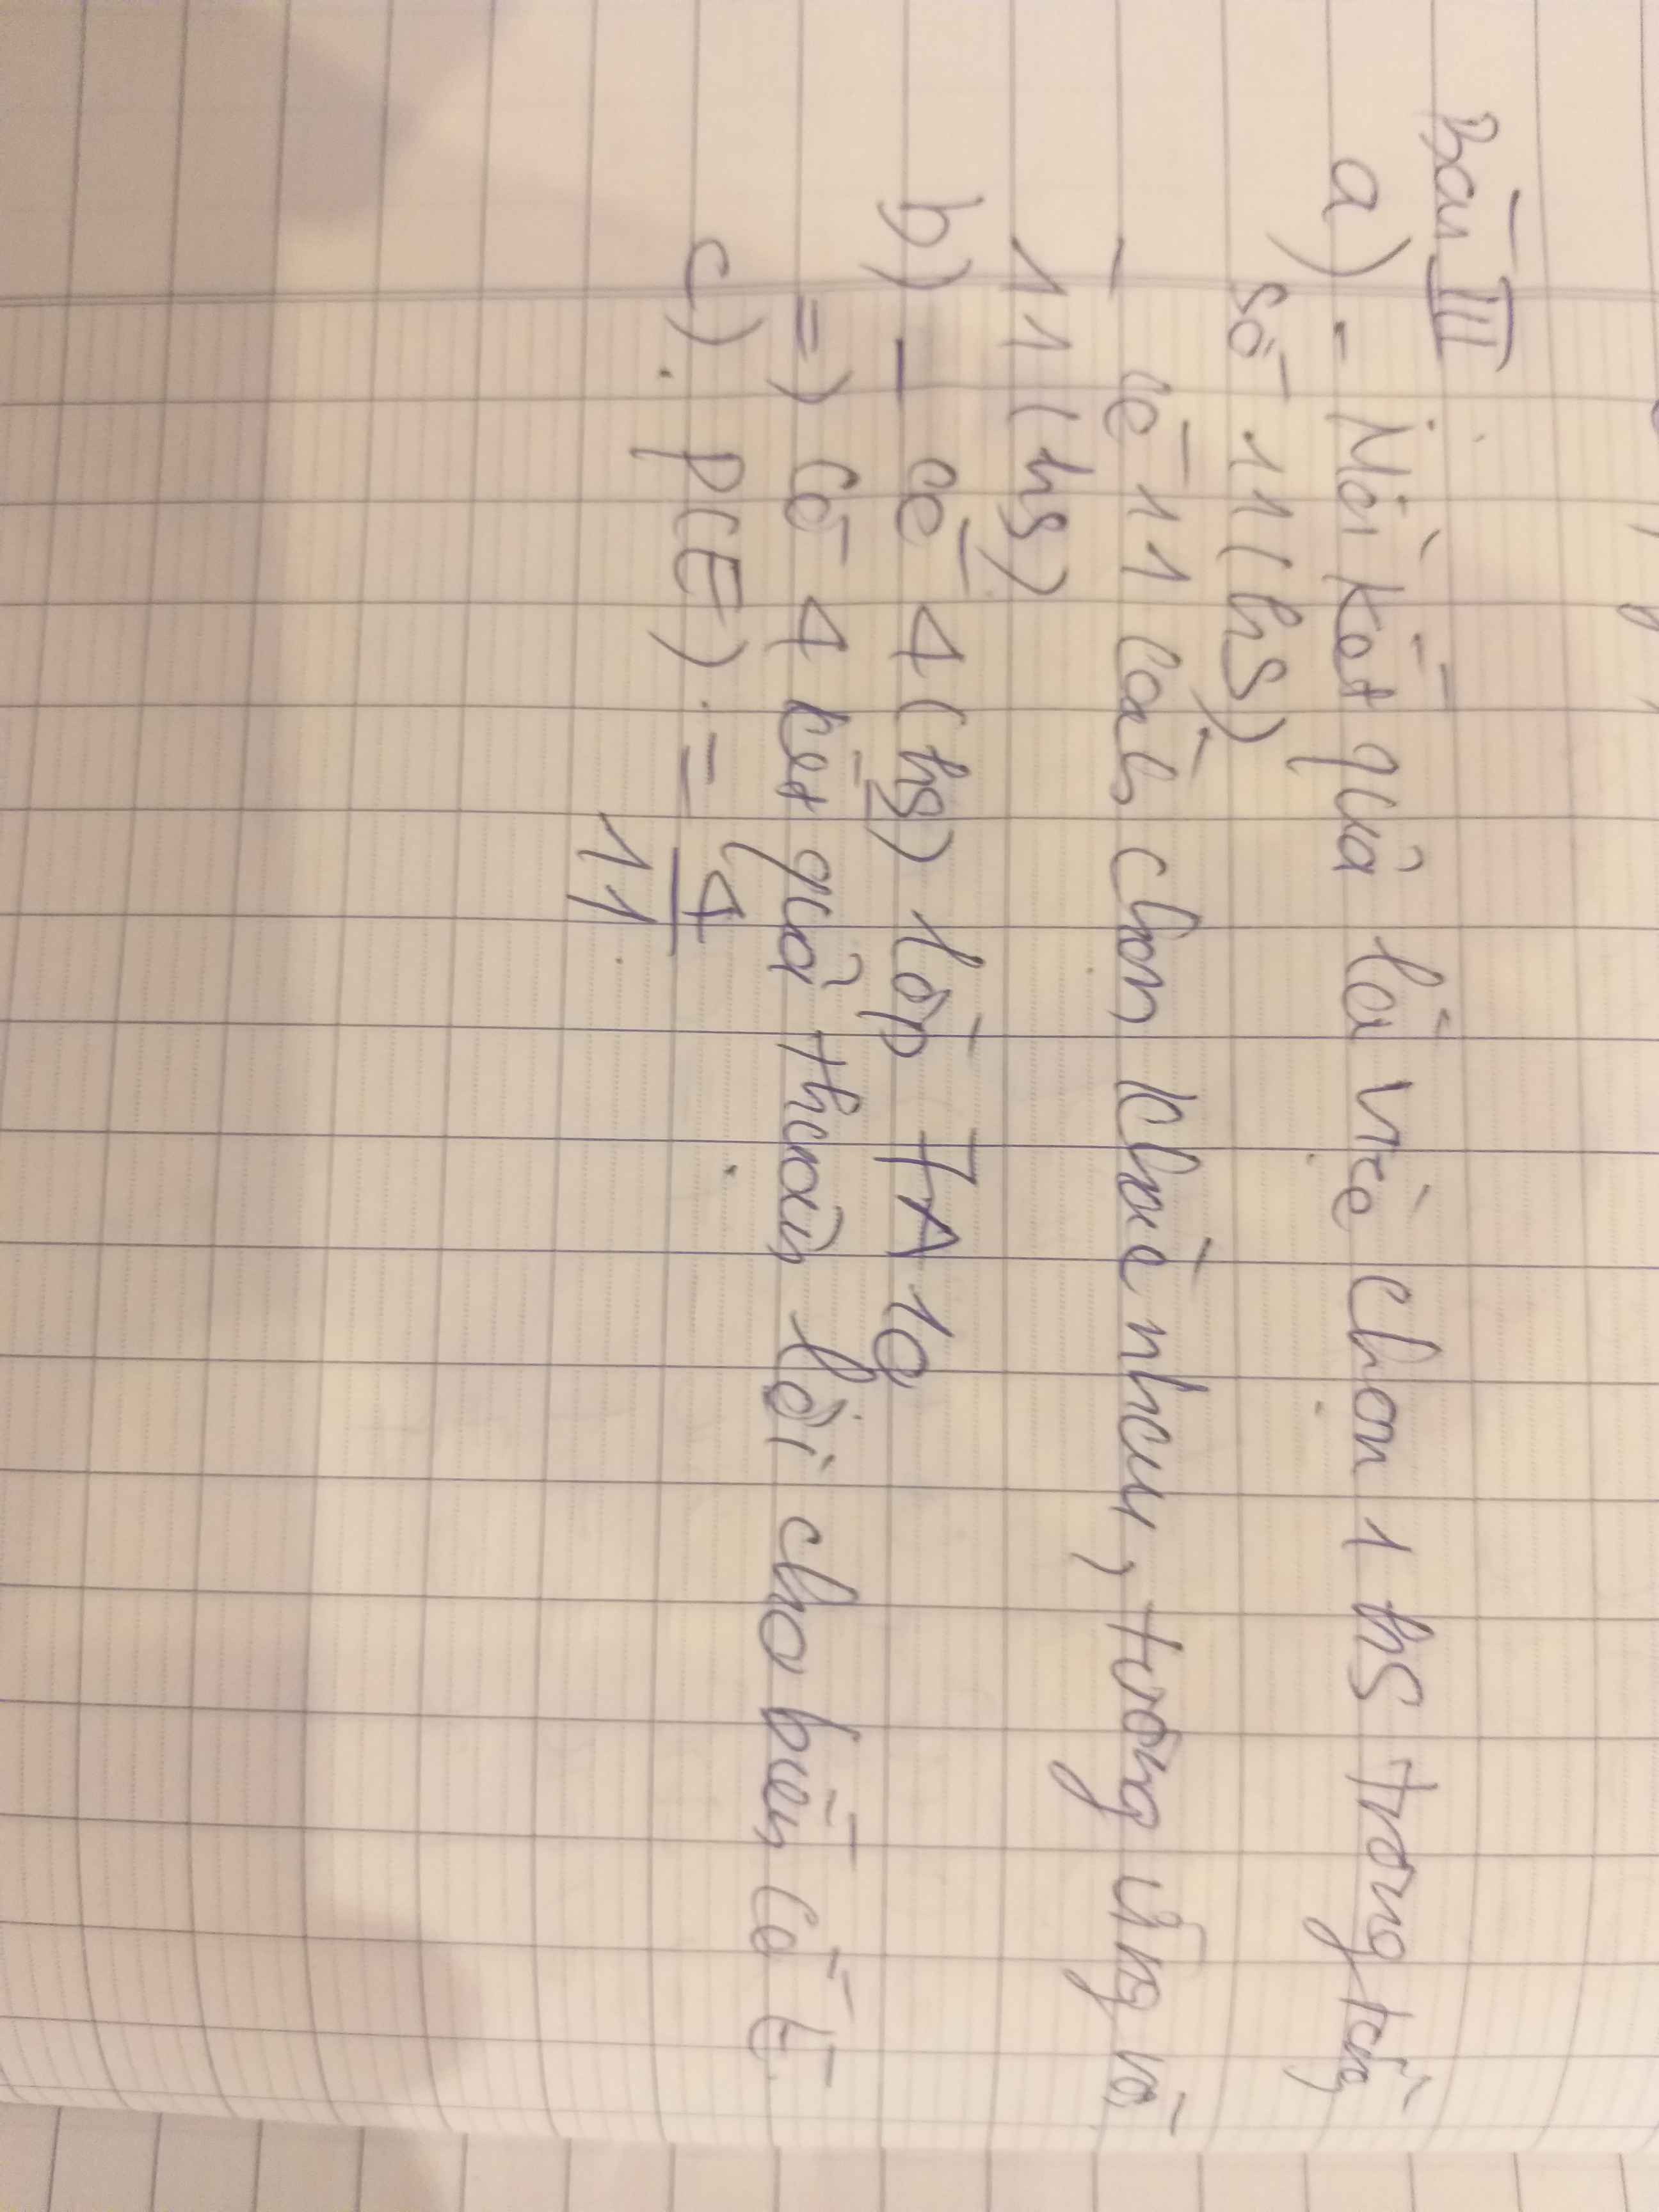 Bài III
a) - Mỗi kết quả là việc chọn 1 hs trong tổng
số 11 (hs)
- Có 11 cách chọn khác nhau, tương ứng với
11 (hs)
b) - Có 4 (hs) lớp 7A
=) Có 4 kết quả thuận lợi cho biến cố E
c) P(E) = 4/11